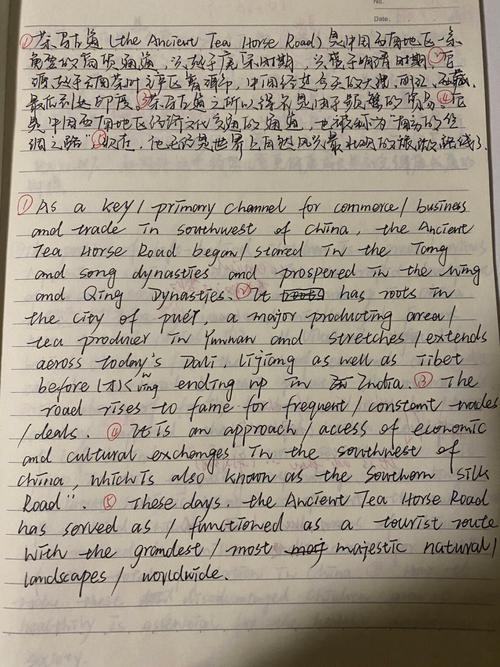 No.
Date.
①茶马古道 (the Ancient Tea Horse Road) 是中国西南地区一条
重要的商贸通道，兴起于唐宋时期，兴盛于明清时期②它
起于云南茶叶主产区普洱市，中间经过今天的大理、丽江、西藏
最后到达印度。③茶马古道之所以得名是由于频繁的贸易④它
是中国西南地区经济文化交流的通道，也被称为"南方的丝
绸之路"⑤现在，它已成为世界上自然风光最壮观的旅游路线了
① As a key / primary channel for commerce / business
and trade in southwest of China, the Ancient
Tea Horse Road began / stared in the Tang
and song dynasties and prospered in the Ming
and Qing Dynasties. ② It has roots in
the city of puer, a major producting area /
tea producer in Yunnan and stretches / extends
across today's Dali, Lijiang as well as Tibet
before ending up in India. ③ The
road rises to fame for frequent / constant trades
/ deals. ④ It is an approach / access of economic
and cultural exchanges in the southwest of
china, which is also known as the Southern Silk
Road". ⑤ These days, the Ancient Tea Horse Road
has served as / functioned as a tourist route
with the grandest / most majestic natural /
landscapes / worldwide.